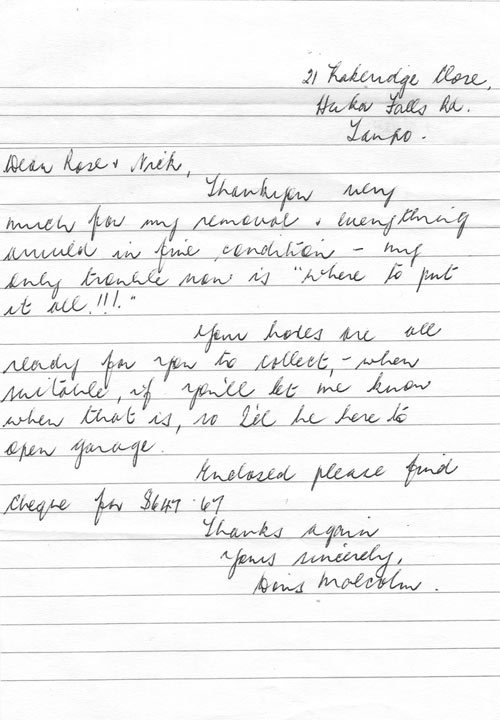 21 Lakeridge Close,
Huka Falls Rd.
Taupo.
Dear Rose & Nick,
Thankyou very
much for my removal & everything
arrived in fine condition – my
only trouble now is "where to put
it all!!!."
Your bodes are all
ready for you to collect, – when
suitable, if you'll let me know
when that is, so I'll be here to
open garage.
Enclosed please find
cheque for $647.67
Thanks again
Yours sincerely,
Malcolm.